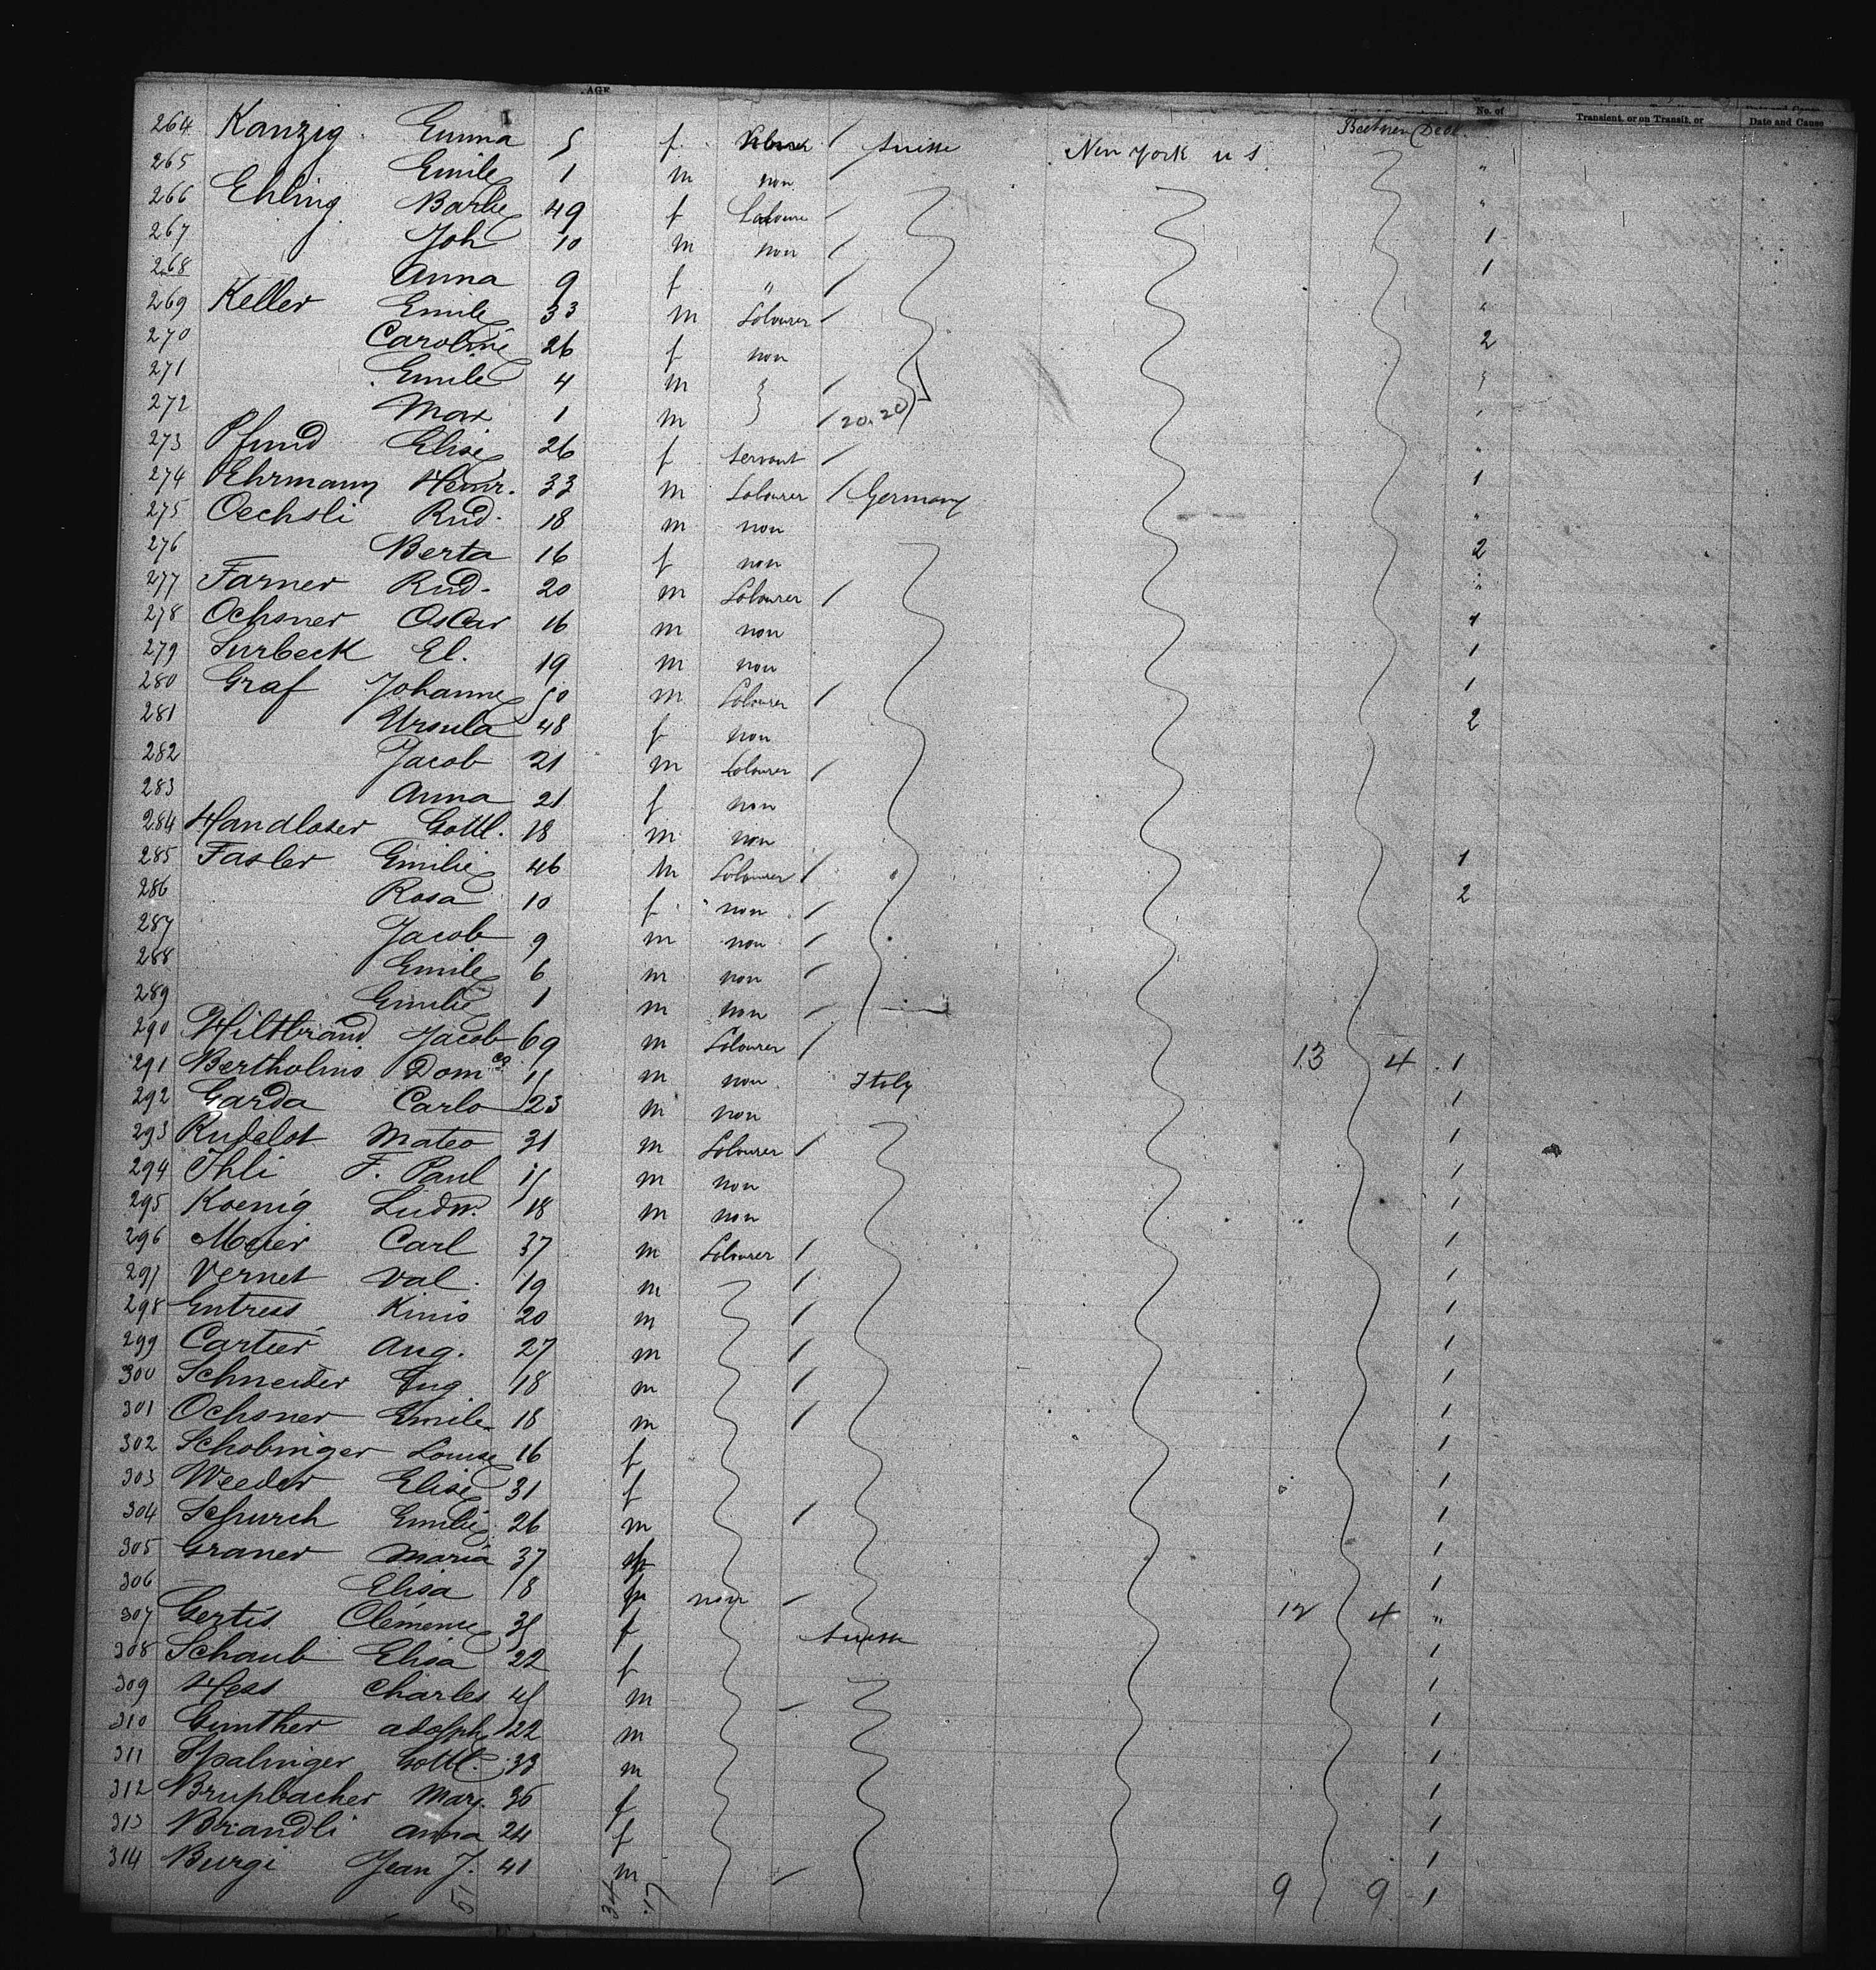 AGE No. of Transient, or on Transit, or Date and Cause
264 Kanzig. Emma 5 f. / Suisse New York U S Between Deck
265 Emile 1 m non /
266 Ehling Barbe 49 f Labourer /
267 Joh 10 m non / 1
268 Anna 9 f " / 1
269 Keller Emile 33 m Labourer /
270 Caroline 26 f non 2
271 Emile 4 m /
272 Max 1 m / 20.20
273 Pfund Elise 26 f Servant /
274 Ehrmann Heinr. 33 m Labourer / Germany 1
275 Oechsli Rud. 18 m non "
276 Berta 16 f non 2
277 Farner Rud. 20 m Labourer /
278 Ochsner Oscar 16 m non 1
279 Surbeck El. 19 m non 1
280 Graf Johanne 50 m Labourer / 1
281 Ursula 48 f non 2
282 Jacob 21 m Labourer /
283 Anna 21 f non
284 Handloser Gottl. 18 m non
285 Fasler Emilie 46 m Labourer / 1
286 Rosa 10 f non / 2
287 Jacob 9 m non /
288 Emile 6 m non /
289 Emilie 1 m non /
290 Hiltbrand Jacob 69 m Labourer / 13 4 1
291 Bertholino Dom co 15 m non Italy 1
292 Garda Carlo 23 m non 1
293 Rudelot Mateo 31 m Labourer / 1
294 Ihli F. Paul 15 m non 1
295 Koenig Ludw. 18 m non 1
296 Meier Carl 37 m Labourer / 1
297 Vernet Val. 19 m / 1
298 Entress 20 m / 1
299 Cartier Aug. 27 m / 1
300 Schneider Eug 18 m / 1
301 Ochsner Emile 18 m / 1
302 Schobinger Louise 16 f 1
303 Weeder Elise 31 f 1
304 Schurch Emilie 26 m / 1
305 Graner Maria 37 1
306 Elisa 18 non / 1
307 Gertis Clemence 35 f Suisse 12 4 "
308 Schaub Elisa 22 f 1
309 Hess Charles 45 m / 1
310 Gunther Adolph 22 m 1
311 Spalinger Gottl. 33 m 1
312 Brupbacher Mary. 36 f 1
313 Brandli Anna 24 f 1
314 Burgi Jean J. 41 m / 1
51 34 17 9 9 1